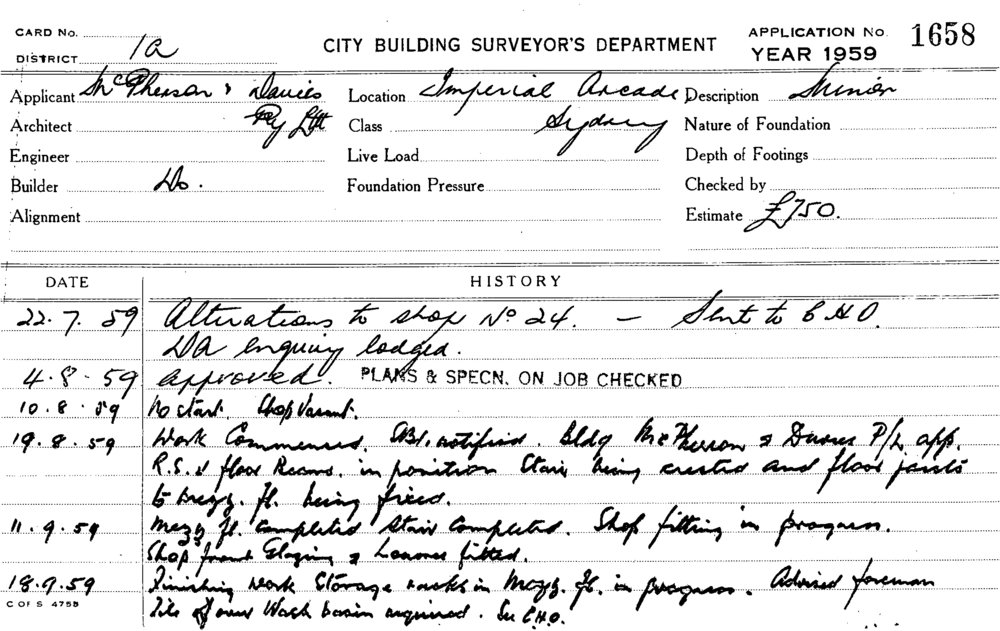 CARD No.
DISTRICT 1a
CITY BUILDING SURVEYOR'S DEPARTMENT
APPLICATION No. 1658
YEAR 1959
Applicant McPherson & Davies Pty Ltd
Location Imperial Arcade Sydney
Description
Architect
Class
Nature of Foundation
Engineer
Live Load
Depth of Footings
Builder Do.
Foundation Pressure
Checked by
Alignment
Estimate £750.
DATE HISTORY
22.7.59 Alterations to shop No 24. — Sent to C H O.
DA enquiry lodged.
4.8.59 approved. PLANS & SPECN. ON JOB CHECKED
10.8.59 No start. Shop Vacant.
19.8.59 Work Commenced. notified. Bldg McPherson & Davies P/L app.
R.S. & floor Beams. in position Stair being erected and floor joists
to mezz. fl. being fixed.
11.9.59 Mezz fl. completed Stair Completed. Shop fitting in progress.
Shop front Glazing & Louvres fitted.
18.9.59 Finishing work Storage racks in Mezz. fl. in progress. Advised foreman
Tile over Wash basin required. See C.H.O.
C OF S 475B